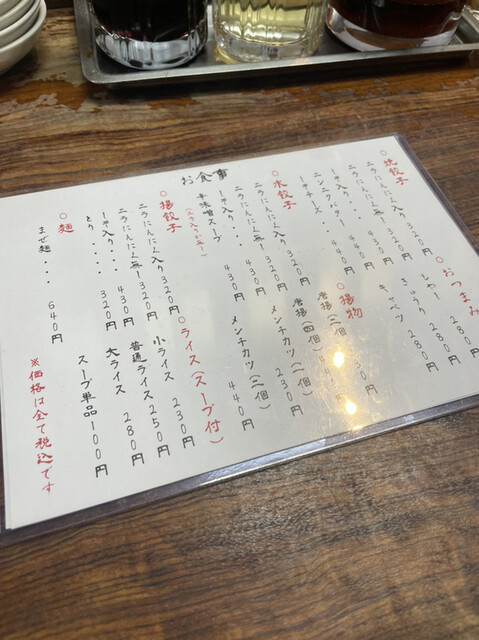 お食事
○焼餃子
ニラにんにく入り 320円
ニラにんにく無し 320円
しそ入り・・・ 430円
ニンニクバター 440円
しそチーズ・・ 440円
○水餃子
ニラにんにく入り 320円
ニラにんにく無し 320円
しそ入り・・・ 430円
辛味噌スープ 430円
(ニラ入り・無し)
○揚餃子
ニラにんにく入り 320円
ニラにんにく無し 320円
しそ入り・・・ 430円
とり・・・・ 320円
○麺
まぜ麺・・・ 640円
○おつまみ
280円
きゅうり 280円
キャベツ 280円
○揚物
唐揚(二個)
唐揚(四個)
メンチカツ(一個) 230円
メンチカツ(二個) 440円
○ライス(スープ付)
小ライス 230円
普通ライス 250円
大ライス 280円
スープ単品 100円
※価格は全て税込です